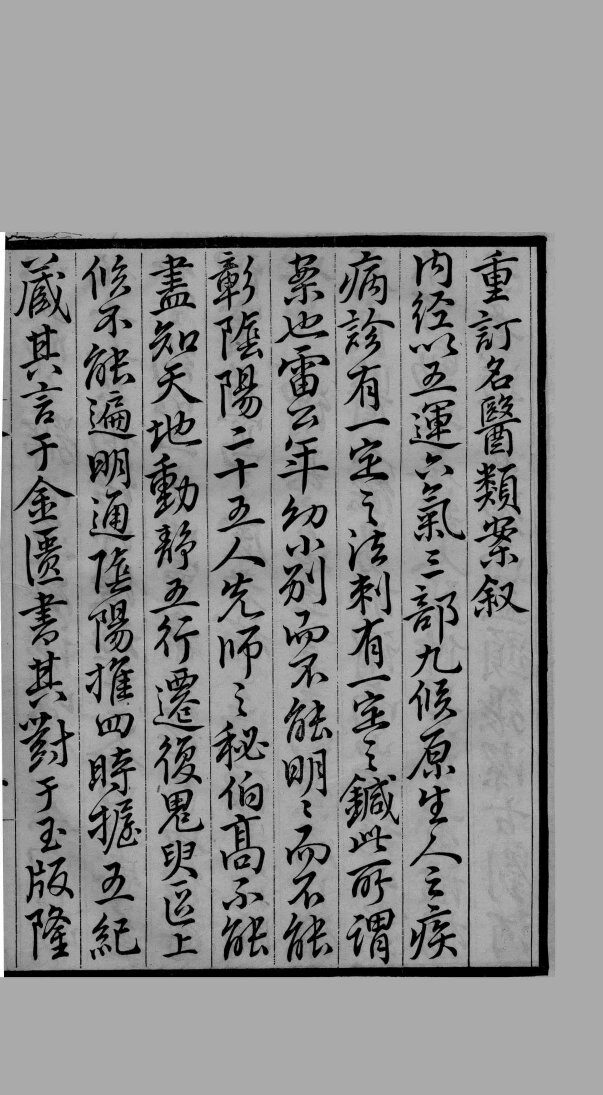 重訂名醫類案叙
内经以五運六氣三部九候原生人之疾
病診有一定之法刺有一定之鍼此所謂
案也雷公年幼小别而不能明〻而不能
彰陰陽二十五人先師之秘伯髙不能
盡知天地動静五行遷復鬼臾區上
候不能遍明通陰陽推四時握五紀
蔵其言于金匱書其對于玉版隆